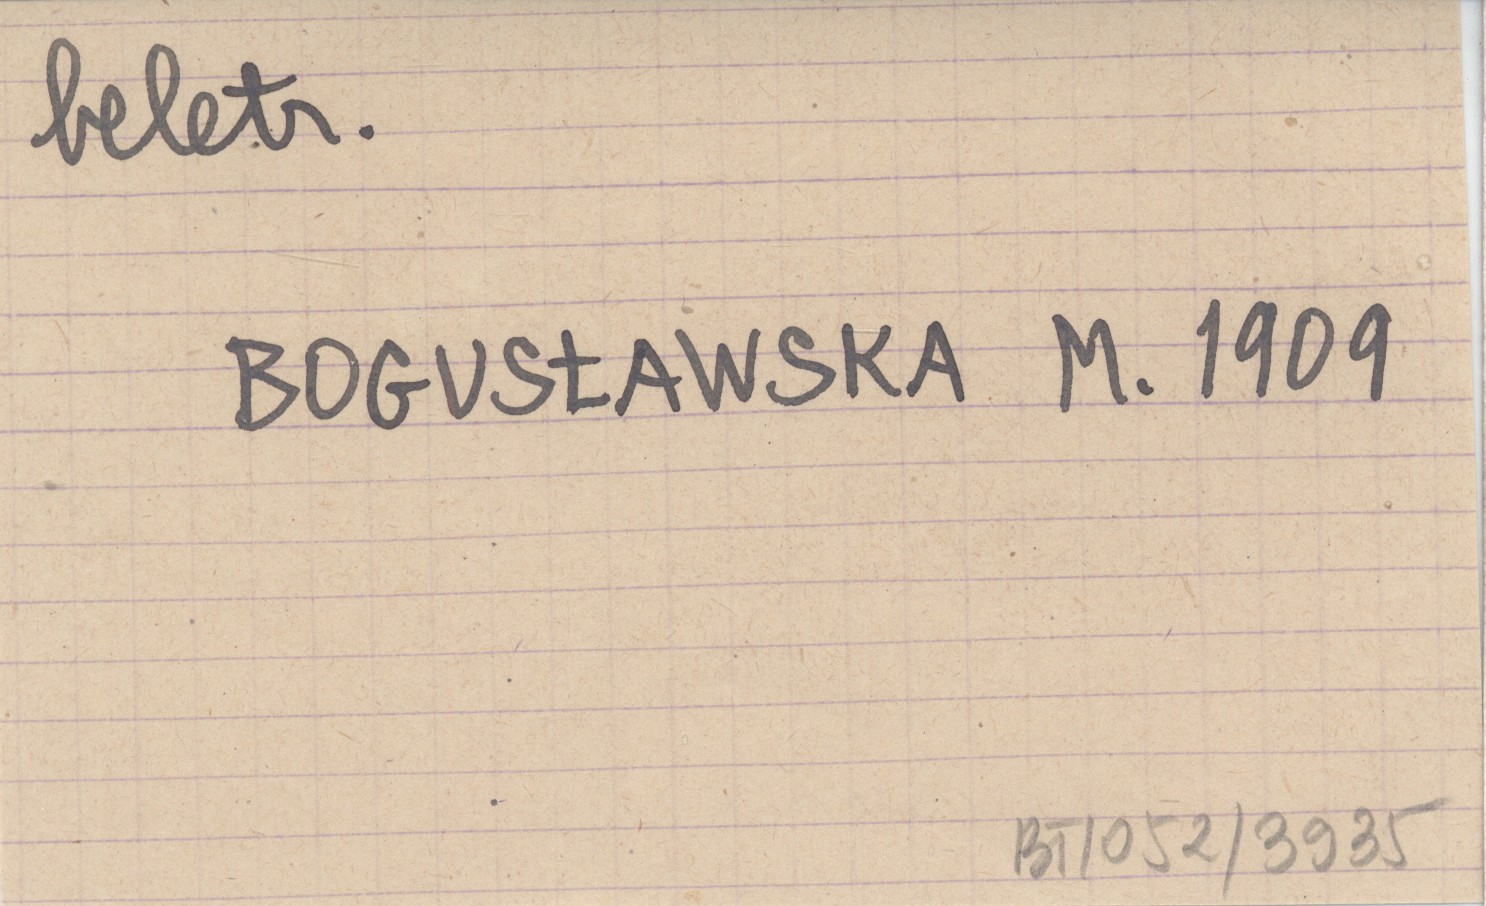 beletr.
BOGUSŁAWSKA M. 1909
BT/052/3935